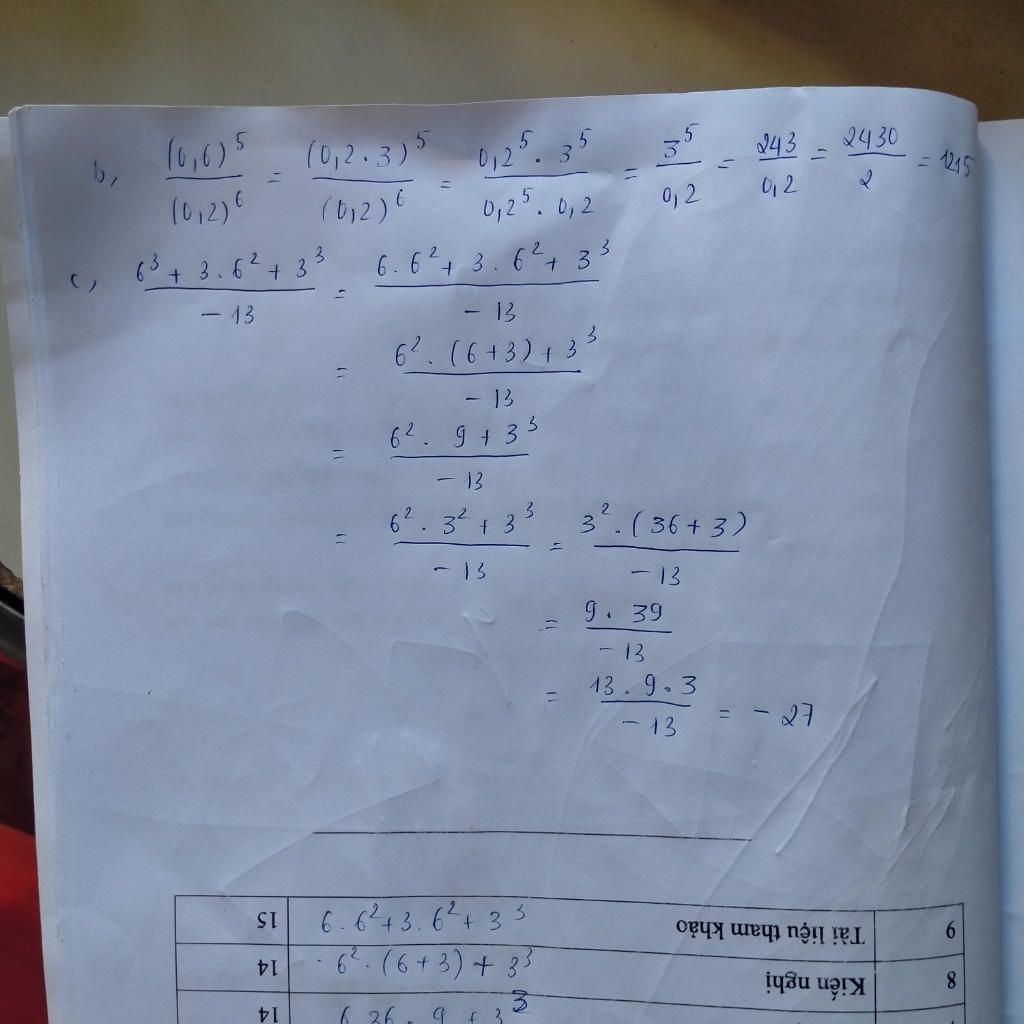 b, (0,6)^5 / (0,2)^6 = (0,2 . 3)^5 / (0,2)^6 = 0,2^5 . 3^5 / 0,2^5 . 0,2 = 3^5 / 0,2 = 243 / 0,2 = 2430 / 2 = 1215
c, 6^3 + 3 . 6^2 + 3^3 / -13 = 6 . 6^2 + 3 . 6^2 + 3^3 / -13
= 6^2 . (6 + 3) + 3^3 / -13
= 6^2 . 9 + 3^3 / -13
= 6^2 . 3^2 + 3^3 / -13 = 3^2 . (36 + 3) / -13
= 9 . 39 / -13
= 13 . 9 . 3 / -13 = - 27
15 6 . 6^2 + 3 . 6^2 + 3^3 Tài liệu tham khảo 9
14 . 6^2 . (6 + 3) + 3^3 Kiến nghị 8
14 9 + 3^3